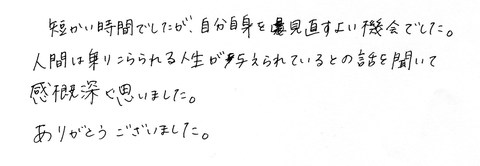 短かい時間でしたが、自分自身を見直すよい機会でした。
人間は乗りこらられる人生が与えられているとの話を聞いて
感概深く思いました。
ありがとうございました。